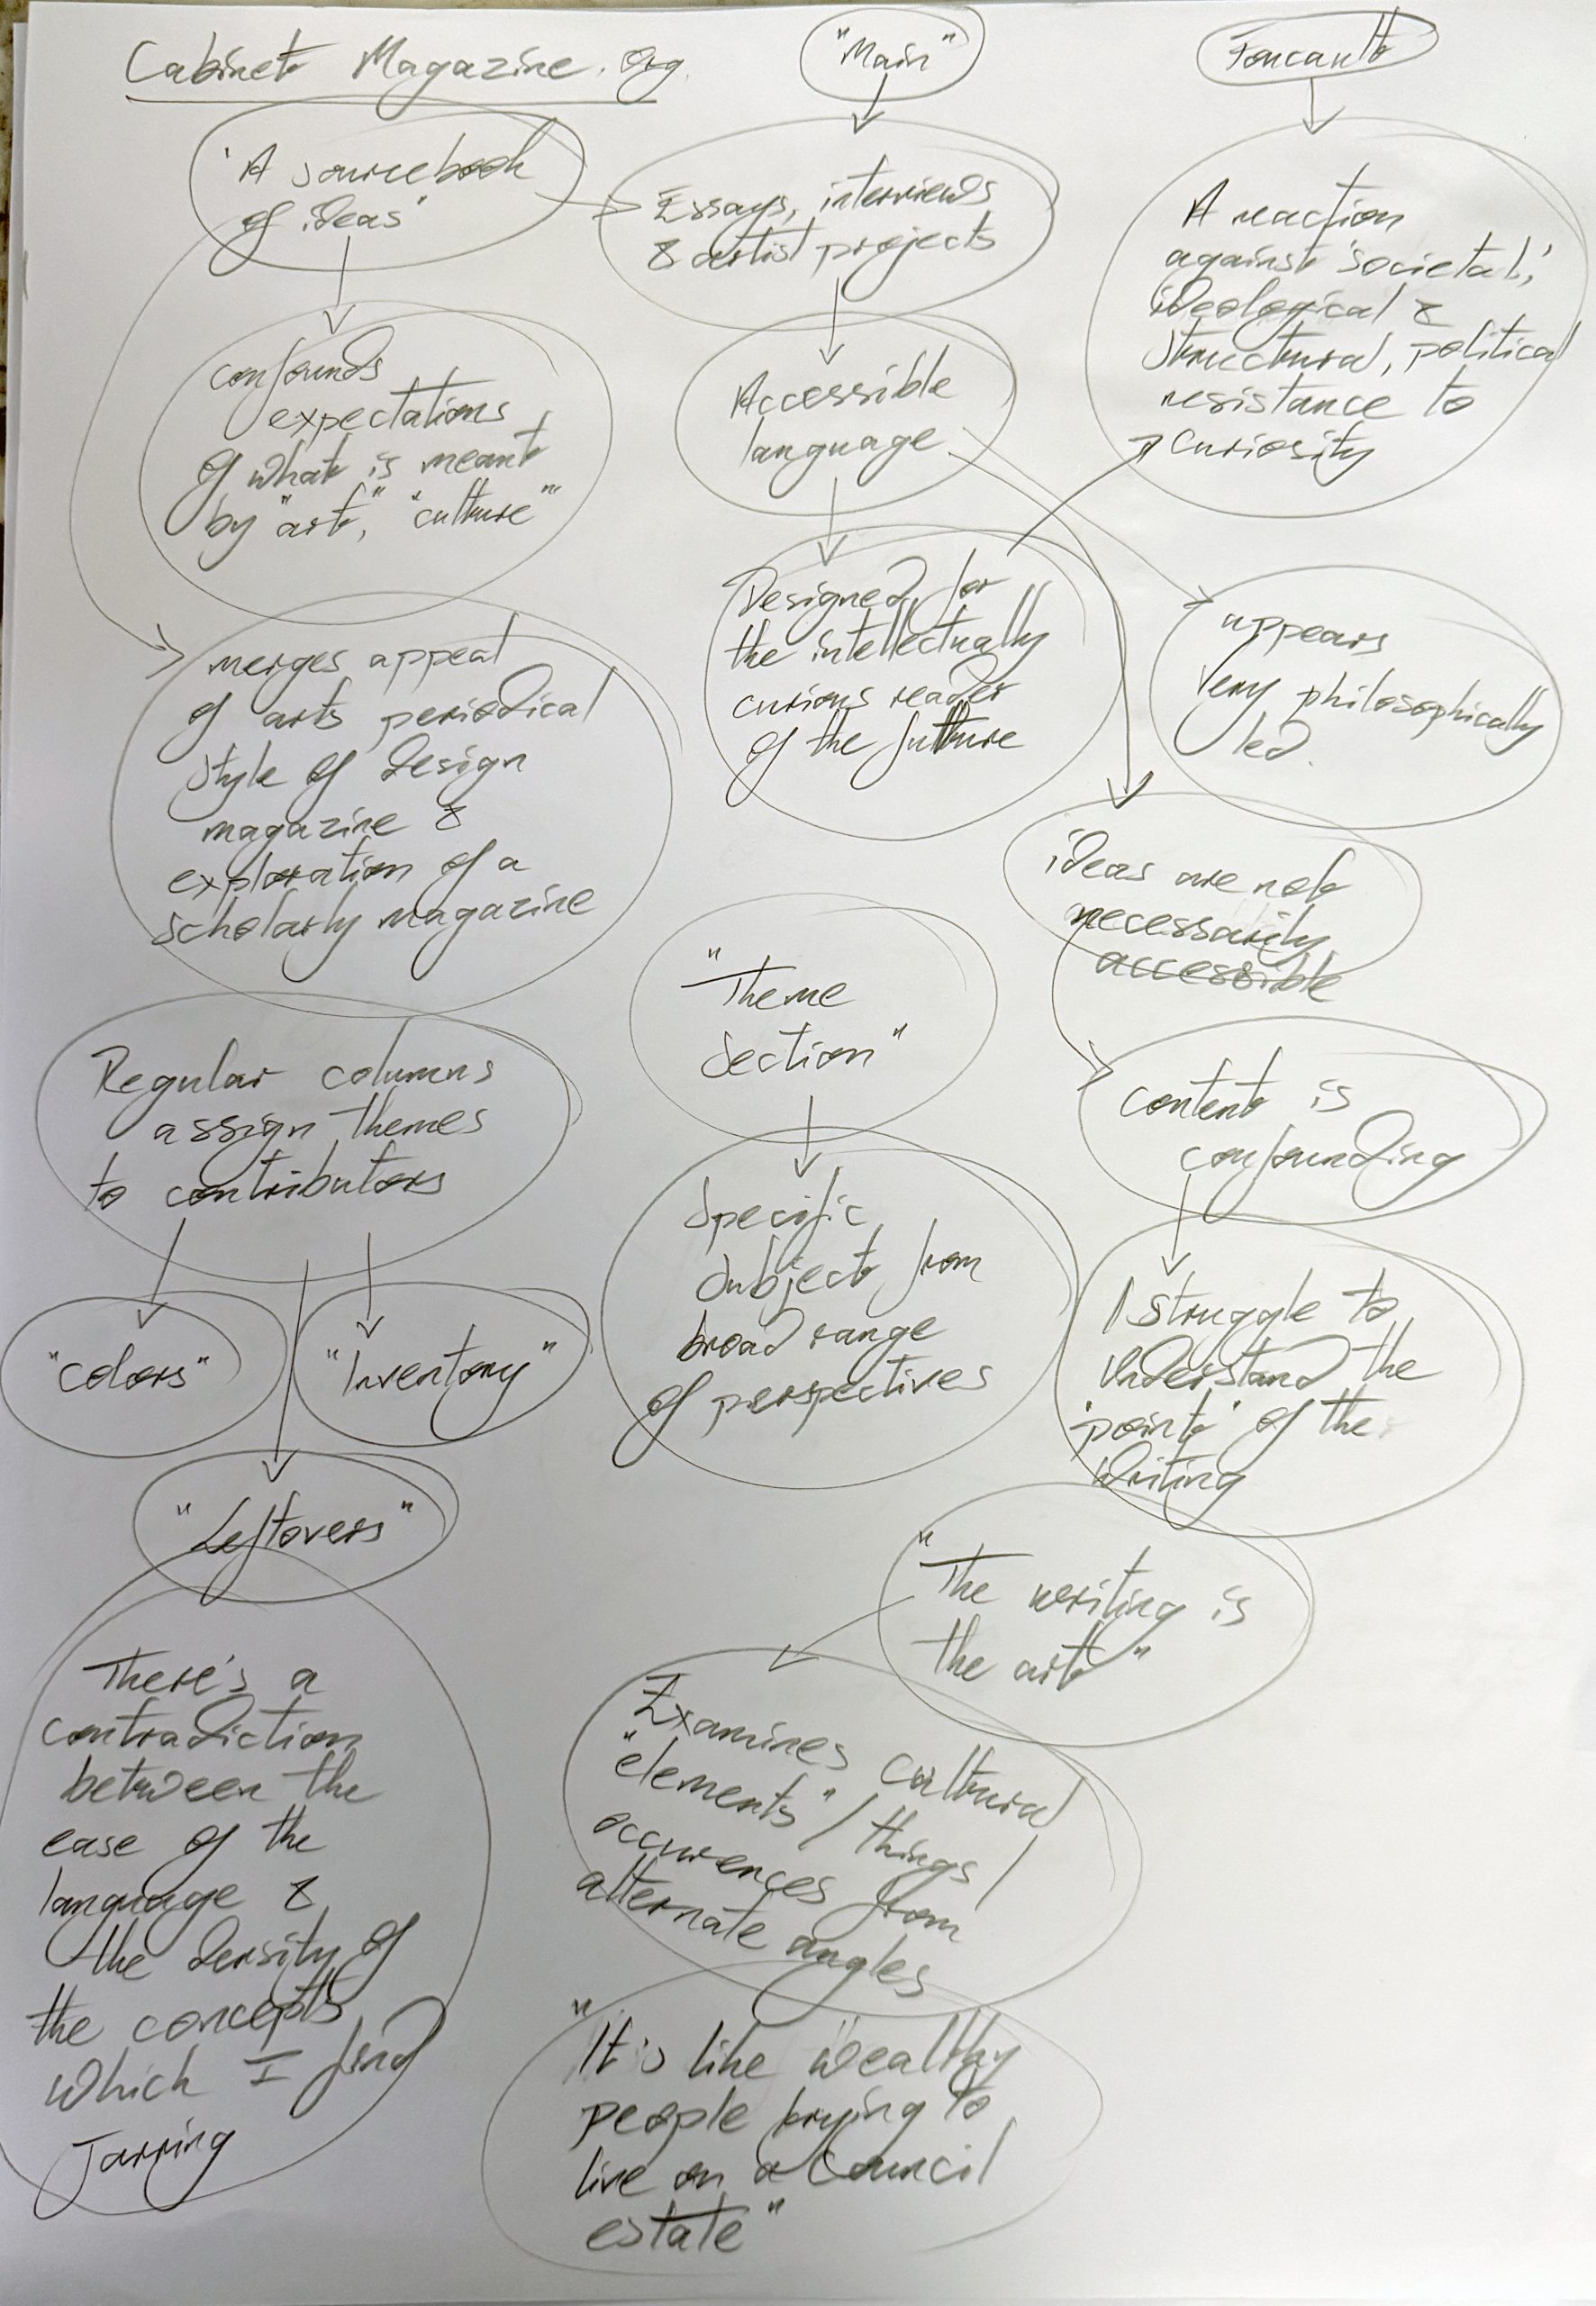 Cabinet Magazine.org
'A sourcebook
of ideas'
confounds
expectations
of what is meant
by "art", "culture""
merges appeal
of arts periodical
style of design
magazine &
exploration of a
scholarly magazine
Regular columns
assign themes
to contributors
"colors"
"Inventory"
"Leftovers"
There's a
contradiction
between the
ease of the
language &
the density of
the concepts
which I find
Jarring
"Main"
Essays, interviews
& artist projects
Accessible
language
Designed for
the intellectually
curious reader
of the future
"Theme
Section"
Specific
subject from
broad range
of perspectives
Foucault
A reaction
against 'societal,'
ideological &
structural, political
resistance to
curiosity
appears
very philosophically
led.
ideas are not
necessarily
accessible
content is
confounding
I struggle to
understand the
'point' of the
writing
"The writing is
the art"
Examines cultural
"elements" / things /
occurences from
alternate angles
"It's like wealthy
people trying to
live on a council
estate"